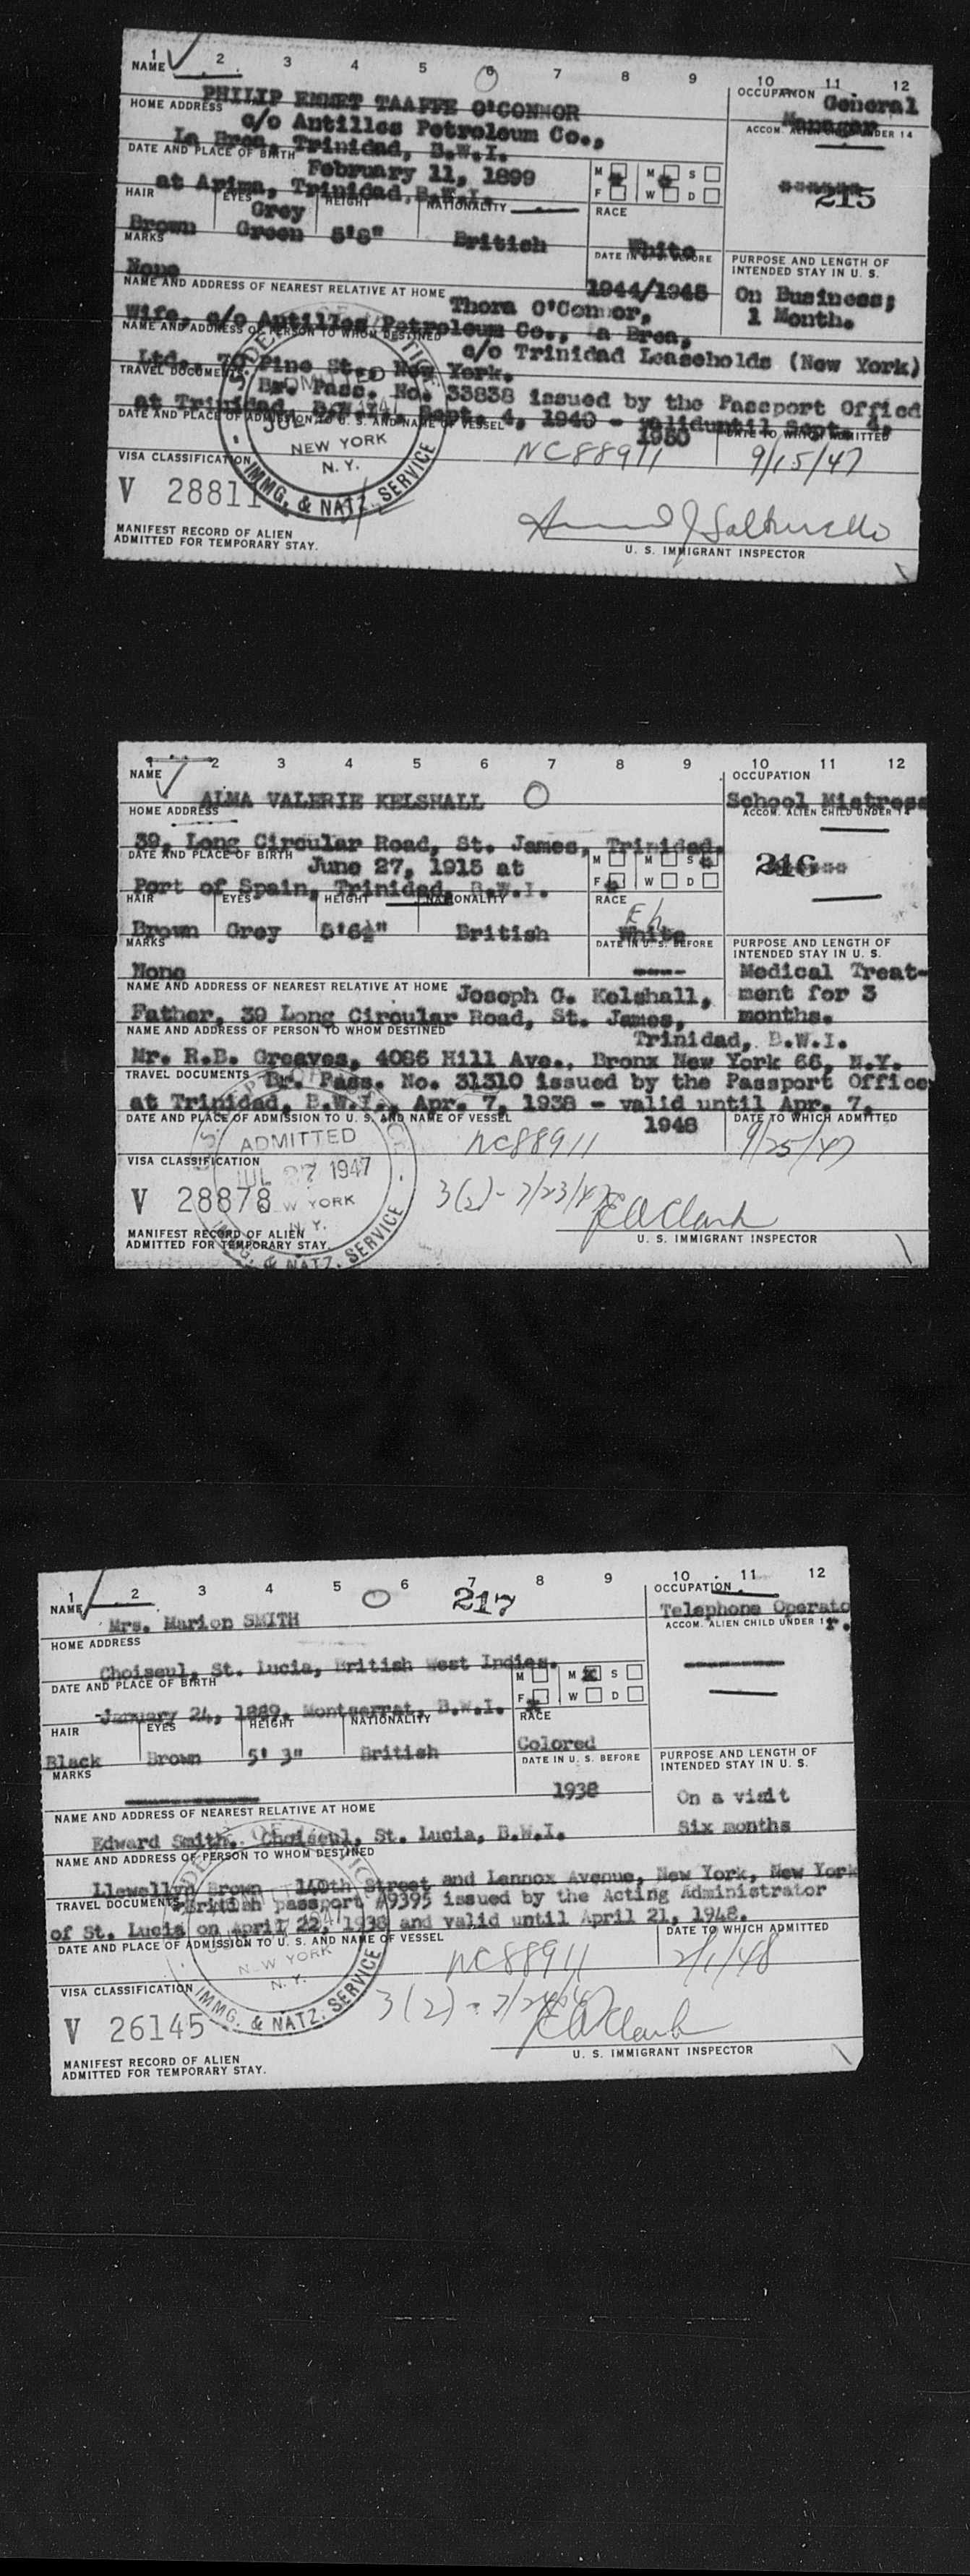 1 2 3 4 5 6 7 8 9 10 11 12
NAME
PHILIP EMMET TAAFFE O'CONNOR
OCCUPATION General
Manager
HOME ADDRESS
c/o Antilles Petroleum Co.,
ACCOM. ALIEN CHILD UNDER 14
La Brea, Trinidad, B.W.I.
DATE AND PLACE OF BIRTH
February 11, 1899
at Arima, Trinidad, B.W.I.
M F M S W D
215
HAIR EYES HEIGHT NATIONALITY RACE
Grey
Brown Green 5'8" British White
MARKS
None
DATE IN U. S. BEFORE
1944/1945
PURPOSE AND LENGTH OF
INTENDED STAY IN U. S.
On Business;
1 Month.
NAME AND ADDRESS OF NEAREST RELATIVE AT HOME
Thora O'Connor,
Wife, c/o Antilles Petroleum Co., La Brea,
NAME AND ADDRESS OF PERSON TO WHOM DESTINED
c/o Trinidad Leaseholds (New York)
Ltd., 70 Pine St., New York.
TRAVEL DOCUMENTS
Br. Pass. No. 33838 issued by the Passport Office
at Trinidad, B.W.I., Sept. 4, 1940 - valid until Sept. 4,
1950
DATE AND PLACE OF ADMISSION TO U. S. AND NAME OF VESSEL
DATE TO WHICH ADMITTED
NC88911 9/15/47
ADMITTED
JUL
NEW YORK
N. Y.
IMMG. & NATZ. SERVICE
VISA CLASSIFICATION
V 28811
MANIFEST RECORD OF ALIEN
ADMITTED FOR TEMPORARY STAY.
U. S. IMMIGRANT INSPECTOR
1 2 3 4 5 6 7 8 9 10 11 12
NAME
ALMA VALERIE KELSHALL
OCCUPATION
School Mistress
HOME ADDRESS
ACCOM. ALIEN CHILD UNDER 14
39, Long Circular Road, St. James, Trinidad.
DATE AND PLACE OF BIRTH
June 27, 1915 at
Port of Spain, Trinidad, B.W.I.
M F M S W D
216
HAIR EYES HEIGHT NATIONALITY RACE
Brown Grey 5'6½" British White
MARKS
None
DATE IN U. S. BEFORE
PURPOSE AND LENGTH OF
INTENDED STAY IN U. S.
Medical Treat-
ment for 3
months.
NAME AND ADDRESS OF NEAREST RELATIVE AT HOME
Joseph G. Kelshall,
Father, 39 Long Circular Road, St. James,
Trinidad, B.W.I.
NAME AND ADDRESS OF PERSON TO WHOM DESTINED
Mr. R.B. Greaves, 4086 Hill Ave., Bronx New York 66, N.Y.
TRAVEL DOCUMENTS
Br. Pass. No. 31310 issued by the Passport Office
at Trinidad, B.W.I., Apr. 7, 1938 - valid until Apr. 7,
1948
DATE AND PLACE OF ADMISSION TO U. S. AND NAME OF VESSEL
DATE TO WHICH ADMITTED
NC88911 9/25/47
ADMITTED
JUL 27 1947
NEW YORK
N. Y.
IMMG. & NATZ. SERVICE
VISA CLASSIFICATION
V 28878
3(2)-7/23/47
MANIFEST RECORD OF ALIEN
ADMITTED FOR TEMPORARY STAY.
U. S. IMMIGRANT INSPECTOR
1 2 3 4 5 6 7 8 9 10 11 12
217
NAME
Mrs. Marion SMITH
OCCUPATION
Telephone Operator.
HOME ADDRESS
ACCOM. ALIEN CHILD UNDER 14
Choiseul, St. Lucia, British West Indies.
DATE AND PLACE OF BIRTH
January 24, 1889. Montserrat, B.W.I.
M F M S W D
HAIR EYES HEIGHT NATIONALITY RACE
Black Brown 5' 3" British Colored
MARKS
DATE IN U. S. BEFORE
1938
PURPOSE AND LENGTH OF
INTENDED STAY IN U. S.
On a visit
Six months
NAME AND ADDRESS OF NEAREST RELATIVE AT HOME
Edward Smith. Choiseul, St. Lucia, B.W.I.
NAME AND ADDRESS OF PERSON TO WHOM DESTINED
Llewellyn Brown 140th Street and Lennox Avenue, New York, New York
TRAVEL DOCUMENTS
British passport #9395 issued by the Acting Administrator
of St. Lucia on April 22, 1938 and valid until April 21, 1948.
DATE AND PLACE OF ADMISSION TO U. S. AND NAME OF VESSEL
DATE TO WHICH ADMITTED
NC88911 2/1/48
NEW YORK
N. Y.
IMMG. & NATZ. SERVICE
VISA CLASSIFICATION
V 26145
MANIFEST RECORD OF ALIEN
ADMITTED FOR TEMPORARY STAY.
U. S. IMMIGRANT INSPECTOR